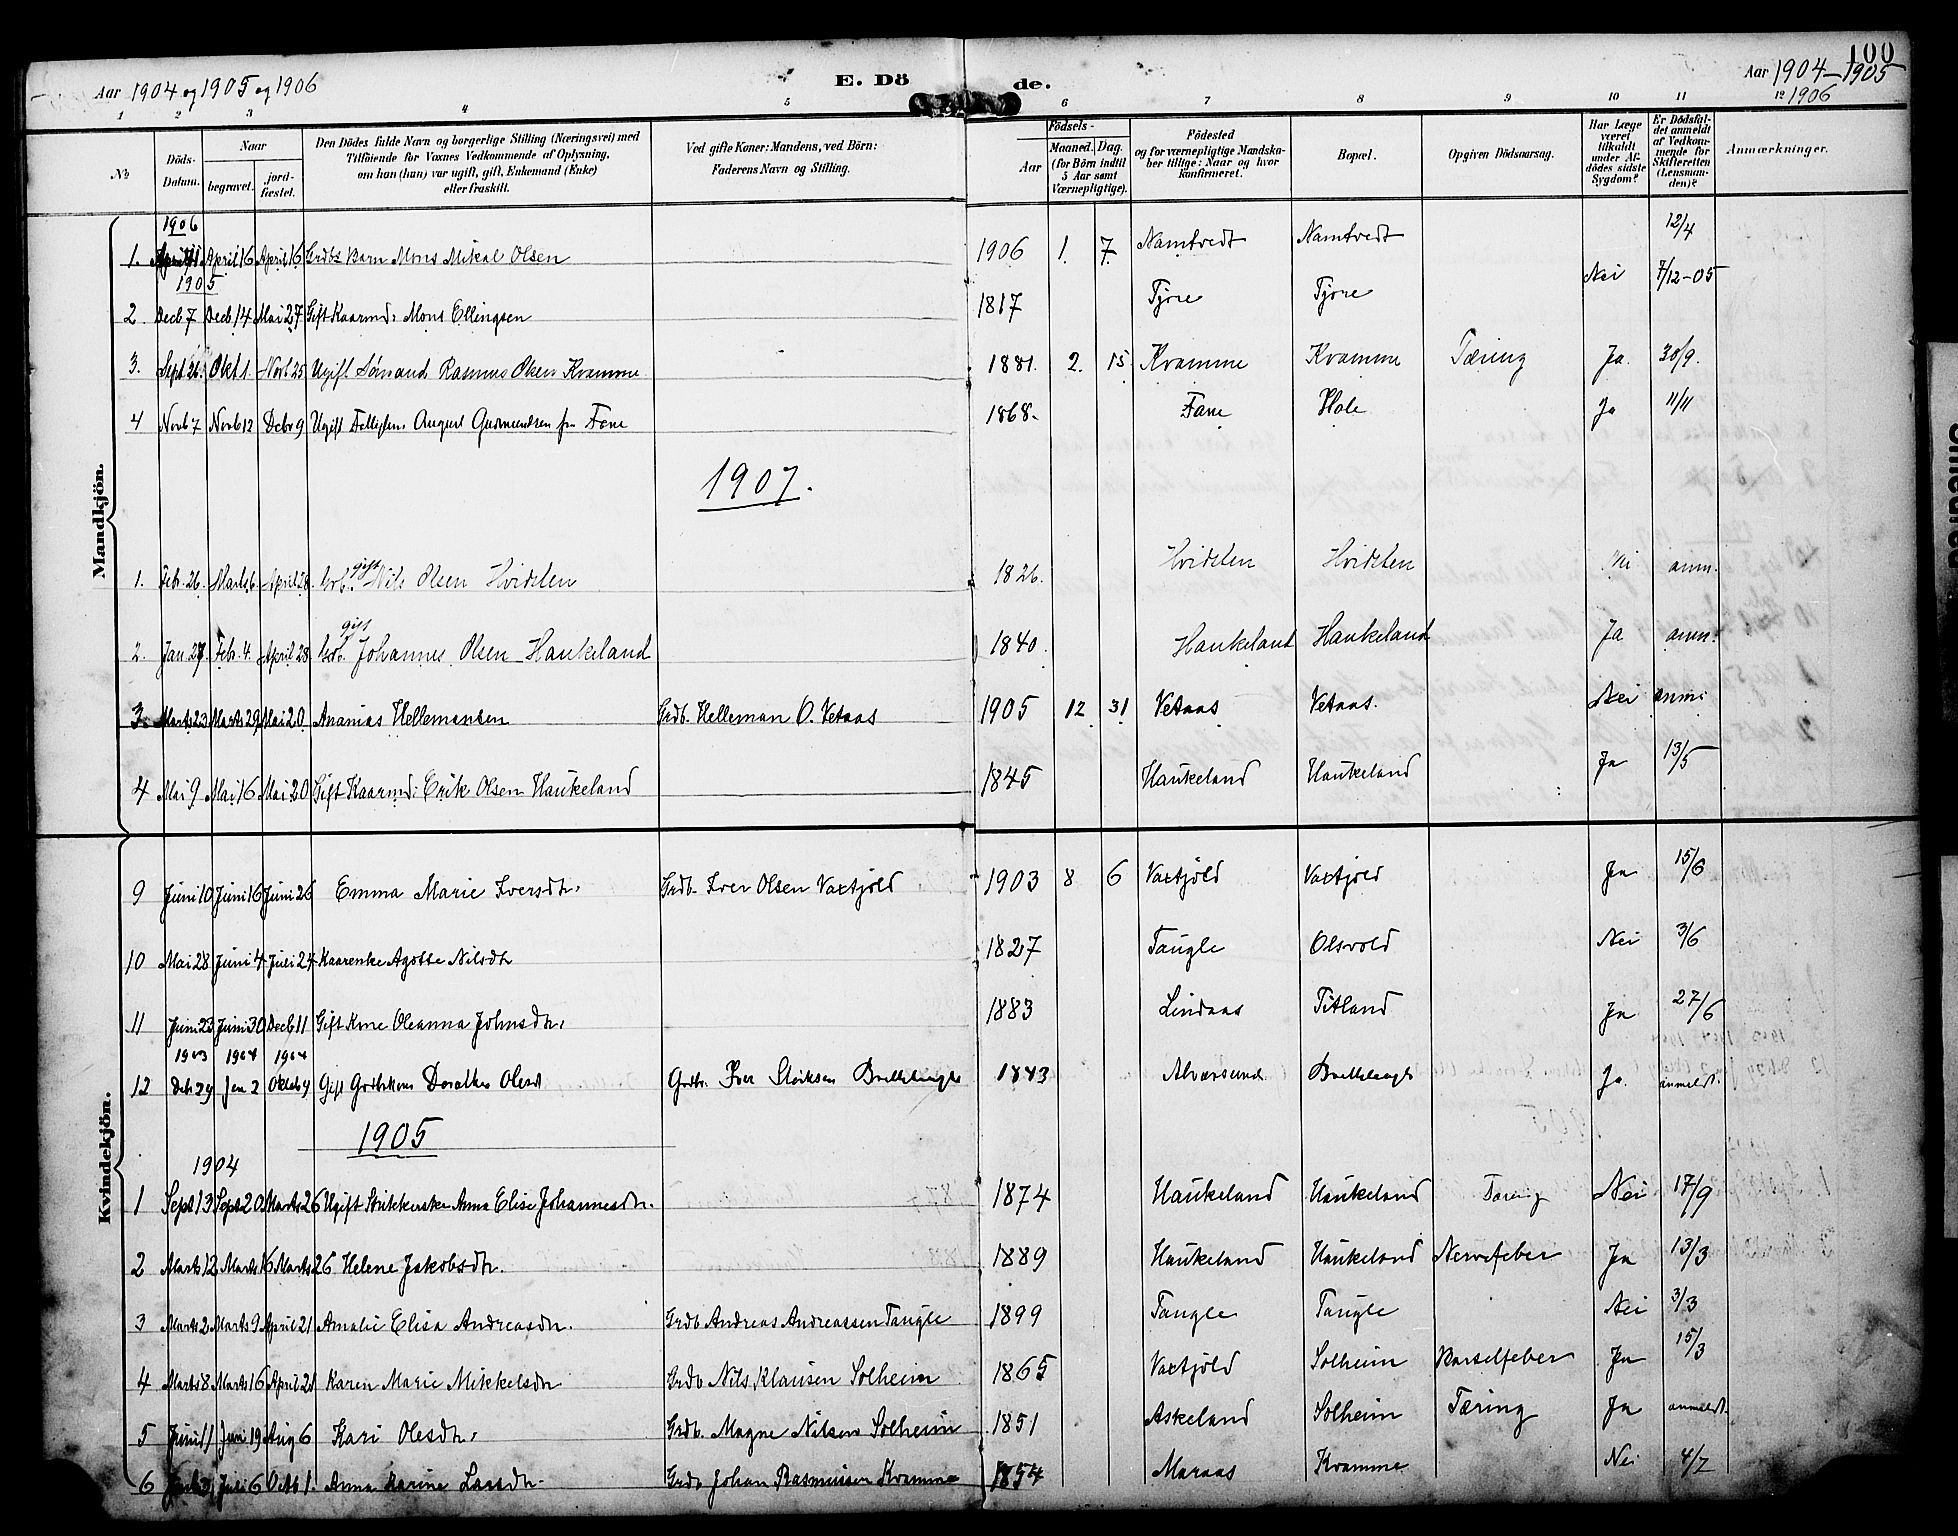 Aar 1904 og 1905 og 1906 E. Døde. Aar 1904-1905 1906 100
1 2 3 4 5 6 7 8 9 10 11 12
№ Døds-Datum. Naar begravet. jordfæstet. Den Dødes fulde Navn og borgerlige Stilling (Næringsvei) med Tilføiende for Voxnes Vedkommende af Oplysning, om han (hun) var ugift, gift, Enkemand (Enke) eller fraskilt. Ved gifte Koner: Mandens, ved Børn: Faderens Navn og Stilling. Fødsels- Aar Maaned. Dag. (for Børn indtil 5 Aar samt Værnepligtige). Fødested og for værnepligtige Mandskaber tillige: Naar og hvor konfirmeret. Bopæl. Opgiven Dødsaarsag. Har Læge været tilkaldt under Afdødes sidste Sygdom? Er Dødsfaldet anmeldt af Vedkommende for Skifteretten (Lensmanden)? Anmærkninger.
Mandkjön.
1906
1. April 16 April 16 Grdbs Barn Mons Mikal Olsen 1906 1. 7 Namtvedt Namtvedt 12/4
1905
2 Decb 7 Decb 14 Mai 27 Gift Kaarmd: Mons Ellingsen 1817 Tjore Tjore Nei 7/12-05
3. Sept. 26. Okt 1. Novb 25 Ugift Rasmus Olsen Kvamme 1881. 2. 15 Kvamme Kvamme Tæring Ja. 30/9.
4 Novb 7 Novb 12 Debr 9 Ugift August Gudmundsen fra Fane 1868. Fane Hole Ja 11/11
1907.
1. Febr. 26. Marts 6. April 28 Grb. gift Nils Olsen Hvidsten 1826. Hvidsten Hvidsten Nei anm.
2. Jan. 27. Febr. 4. April 28 Grb. gift Johannes Olsen Haukeland 1840. Haukeland Haukeland Ja anm.
3. Marts 23 Marts 29 Mai 20 Ananias Hellemansen Grdb. Helleman O. Vetaas 1905 12 31 Vetaas Vetaas. Nei anm:
4 Mai 9 Mai 16 Mai 20 Gift Kaarmd: Erik Olsen Haukeland 1845 Haukeland Haukeland Ja 13/5
Kvindekjön.
9 Juni 10 Juni 16 Juni 26 Emma Marie Iversdtr. Grdb. Iver Olsen Vaxtjøld 1903 8 6 Vaxtjøld Vaxtjøld Ja 15/6
10 Mai 28 Juni 4 Juli 24 Kaarenke Agotte Nilsdtr 1827 Taugle Olsvold Nei 3/6
11 Juni 23 Juni 30 Decb 11 Gift Kone Oleanna Johnsdtr. 1883 Lindaas Titland Ja 27/6
1903 1904 1904
12 Jan 2 Gift Dorothea Olesd Grdbr. Iver 1843 Alversund Ja. anmeldt.
1905
1904
1 Sept 13 Sept 20 Marts 26 Ugift Strikkerske Anna Elise Johannesdtr. 1874 Haukeland Haukeland Tæring Nei 17/9
2 Marts 12 Marts 16 Marts 26 Helene Jakobsdtr. 1889 Haukeland Haukeland Nervefeber Ja 13/3
3 Marts 2 Marts 9 April 21 Amalie Elisa Andreasdtr. Grdb Andreas Andreassen Taugle 1899 Taugle Taugle Nei 3/3
4 Marts 8 Marts 16 April 21 Karen Marie Mikkelsdtr Grdb Nils Klausen Solheim 1865 Vaxtjøld Solheim Barselfeber Ja 15/3
5 Juni 11 Juni 19 Aug 6 Kari Olesdtr. Grdb. Magne Nilsen Solheim 1851 Askeland Solheim Tæring Ja anmeldt.
6 Juli 6 Octb 1. Anna Karine Larsdtr. Grdb Johan Rasmussen Kvamme 1854 Maraas Kvamme Nei 4/7